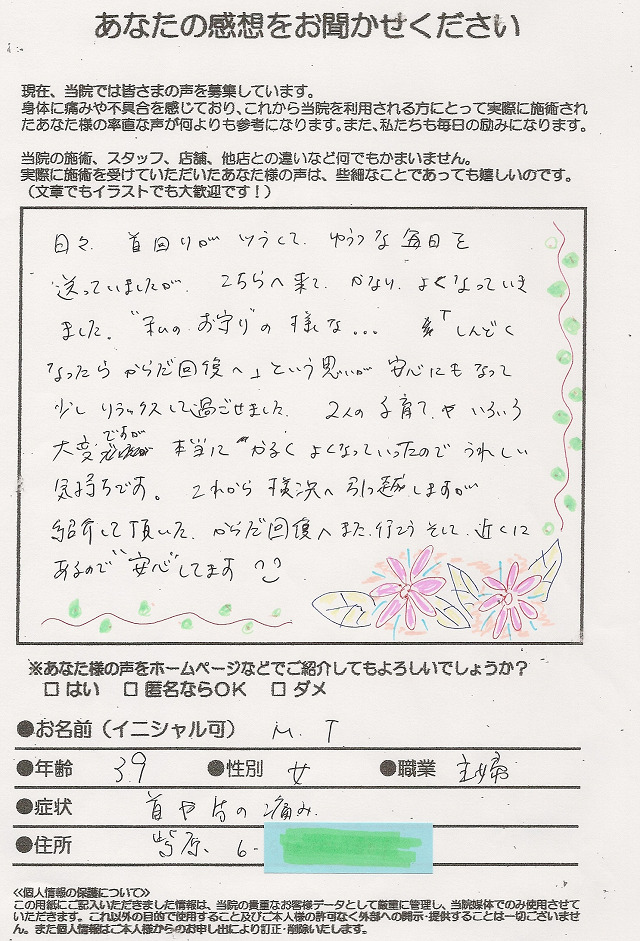 あなたの感想をお聞かせください
現在、当院では皆さまの声を募集しています。
身体に痛みや不具合を感じており、これから当院を利用される方にとって実際に施術され
たあなた様の率直な声が何よりも参考になります。また、私たちも毎日の励みになります。
当院の施術、スタッフ、店舗、他店との違いなど何でもかまいません。
実際に施術を受けていただいたあなた様の声は、些細なことであっても嬉しいのです。
（文章でもイラストでも大歓迎です！）
日々、首回りがツラくて、ゆううつな毎日を
送っていましたが、こちらへ来て、かなり、よくなっていき
ました。“私のお守り”の様な... 「しんどく
なったら からだ回復へ」という思いが 安心にもなって
少し リラックスして過ごせました。2人の子育て、や いろいろ
大変ですが 本当に かるく よくなっていったので うれしい
気持ちです。これから 横浜へ引っ越しますが
紹介して頂いた、からだ回復へ また、行こう そして、近くに
あるので“安心”してます
※あなた様の声をホームページなどでご紹介してもよろしいでしょうか？
□ はい □ 匿名ならOK □ ダメ
●お名前（イニシャル可） M. T
●年齢 39 ●性別 女 ●職業 主婦
●症状 首や肩の痛み
●住所 6-
≪個人情報の保護について≫
この用紙にご記入いただきました情報は、当院の貴重なお客様データとして厳重に管理し、当院媒体でのみ使用させて
いただきます。これ以外の目的で使用すること及びご本人様の許可なく外部への開示・提供することは一切ございませ
ん。また個人情報はご本人様からのお申し出により訂正・削除いたします。